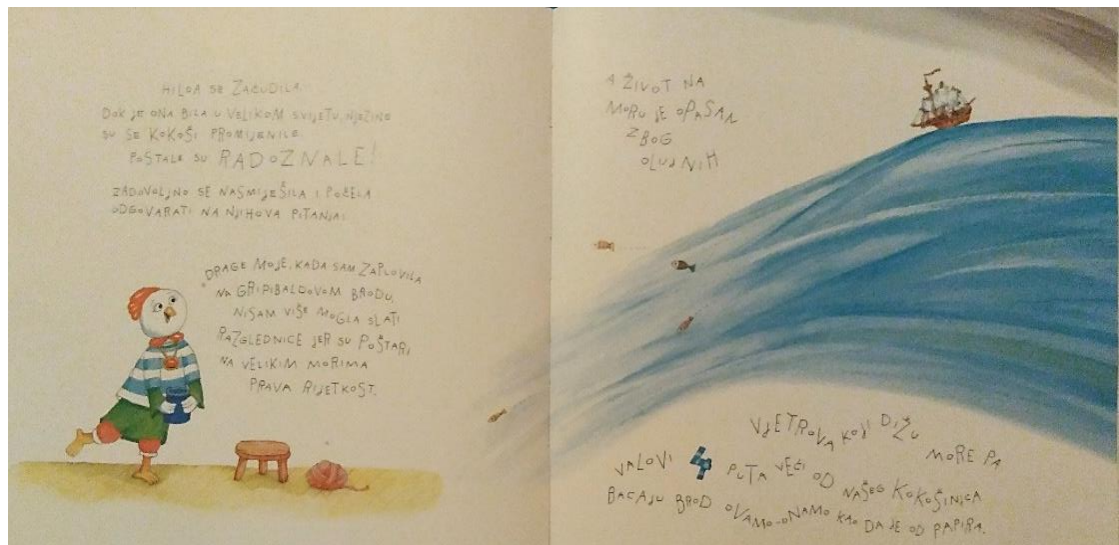 HILDA SE ZAČUDILA.
DOK JE ONA BILA U VELIKOM SVIJETU, NJEZINE
SU SE KOKOŠI PROMIJENILE.
POSTALE SU RADOZNALE!
ZADOVOLJNO SE NASMIJEŠILA I POČELA
ODGOVARATI NA NJIHOVA PITANJA:
"DRAGE MOJE, KADA SAM ZAPLOVILA
NA GRIPIBALDOVOM BRODU,
NISAM VIŠE MOGLA SLATI
RAZGLEDNICE JER SU POŠTARI
NA VELIKIM MORIMA
PRAVA RIJETKOST.
A ŽIVOT NA
MORU JE OPASAN
ZBOG
OLUJNIH
VJETROVA KOJI DIŽU
MORE PA
VALOVI 4 PUTA VEĆI OD NAŠEG KOKOŠINJCA
BACAJU BROD OVAMO-ONAMO KAO DA JE OD PAPIRA.